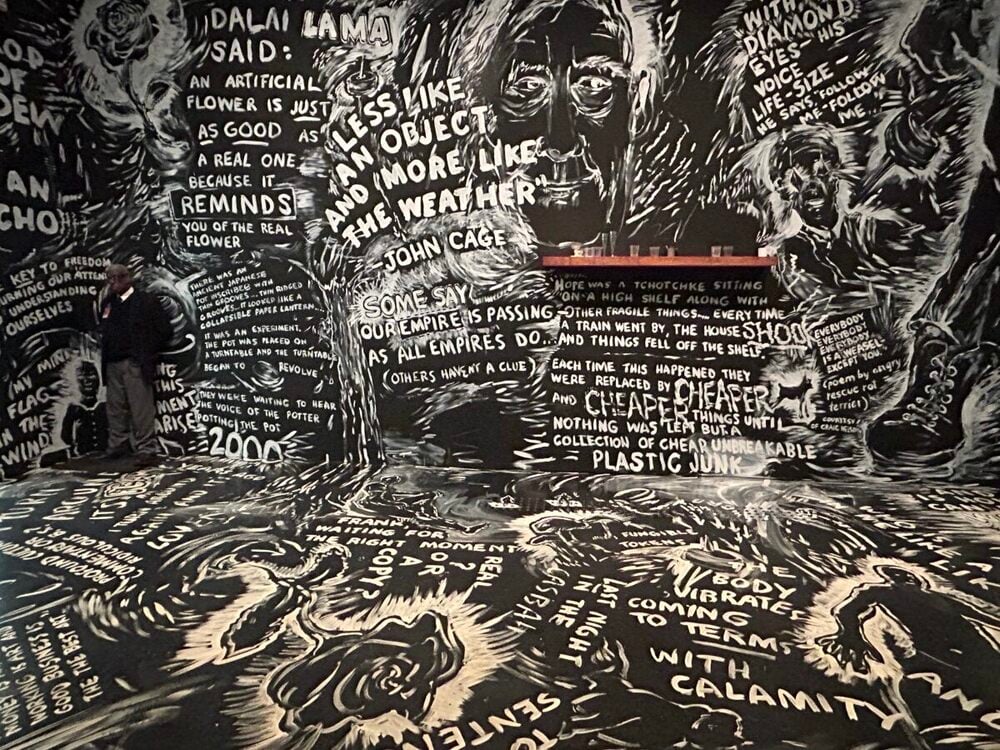 OD
OF
DEW
AN
CHO
KEY TO FREEDOM
TURNING OUR ATTEN
UNDERSTANDING
OURSELVES
MY MIND
FLAG
IN THE
WIND
DALAI LAMA
SAID:
AN ARTIFICIAL
FLOWER IS JUST
AS GOOD AS
A REAL ONE
BECAUSE IT
REMINDS
YOU OF THE REAL
FLOWER
THERE WAS AN
ANCIENT JAPANESE
POT INSCRIBED WITH
THIN GROOVES... THIN RIDGED
GROOVES... IT LOOKED LIKE A
COLLAPSIBLE PAPER LANTERN.
IT WAS AN EXPERIMENT.
THE POT WAS PLACED ON
A TURNTABLE AND THE TURNTABLE
BEGAN TO REVOLVE
THEY WERE WAITING TO HEAR
THE VOICE OF THE POTTER
POTTING THE POT
2000
NG
THIS
MENT
ARISE
"LESS LIKE
AN OBJECT
AND MORE LIKE
THE WEATHER"
JOHN CAGE
SOME SAY
OUR EMPIRE IS PASSING
AS ALL EMPIRES DO...
(OTHERS HAVEN'T A CLUE)
WITH
DIAMOND
EYES - HIS
VOICE
LIFE-SIZE -
HE SAYS, FOLLOW
ME - FOLLOW
ME..
HOPE WAS A TCHOTCHKE SITTING
ON A HIGH SHELF ALONG WITH
OTHER FRAGILE THINGS... EVERY TIME
A TRAIN WENT BY, THE HOUSE SHOOK
AND THINGS FELL OFF THE SHELF.
EACH TIME THIS HAPPENED THEY
WERE REPLACED BY CHEAPER
AND CHEAPER THINGS UNTIL
NOTHING WAS LEFT BUT A
COLLECTION OF CHEAP UNBREAKABLE
PLASTIC JUNK
EVERYBODY
EVERYBODY
EVERYBODY
IS A WEASEL
EXCEPT YOU.
(poem by angry
rescue rat
terrier)
COURTESY
OF CRAIG
PROFOUND
RIDICULOUS
WORKING IS ART AND
GOOD BUSINESS IS
THE BEST ART
FRANK
WAITING FOR
THE RIGHT MOMENT
REAL
OR
A
COPY?
FUNGIBLE
TOKENS
LAST NIGHT
IN THE
ASTRAL
THE
BODY
VIBRATES
COMING
TO TERMS
WITH
CALAMITY
SENTEN
TO
AN